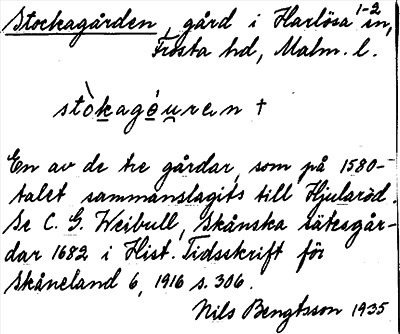 Stockagården, gård i Harlösa 1-2 sn,
Frosta hd, Malm. l.
stòkagå̀u̯ren †
En av de tre gårdar, som på 1580-
talet sammanslagits till Hjularöd.
Se C. G. Weibull, Skånska sätesgår-
dar 1682 i Hist. Tidsskrift för
Skåneland 6, 1916 s. 306.
Nils Bengtsson 1935